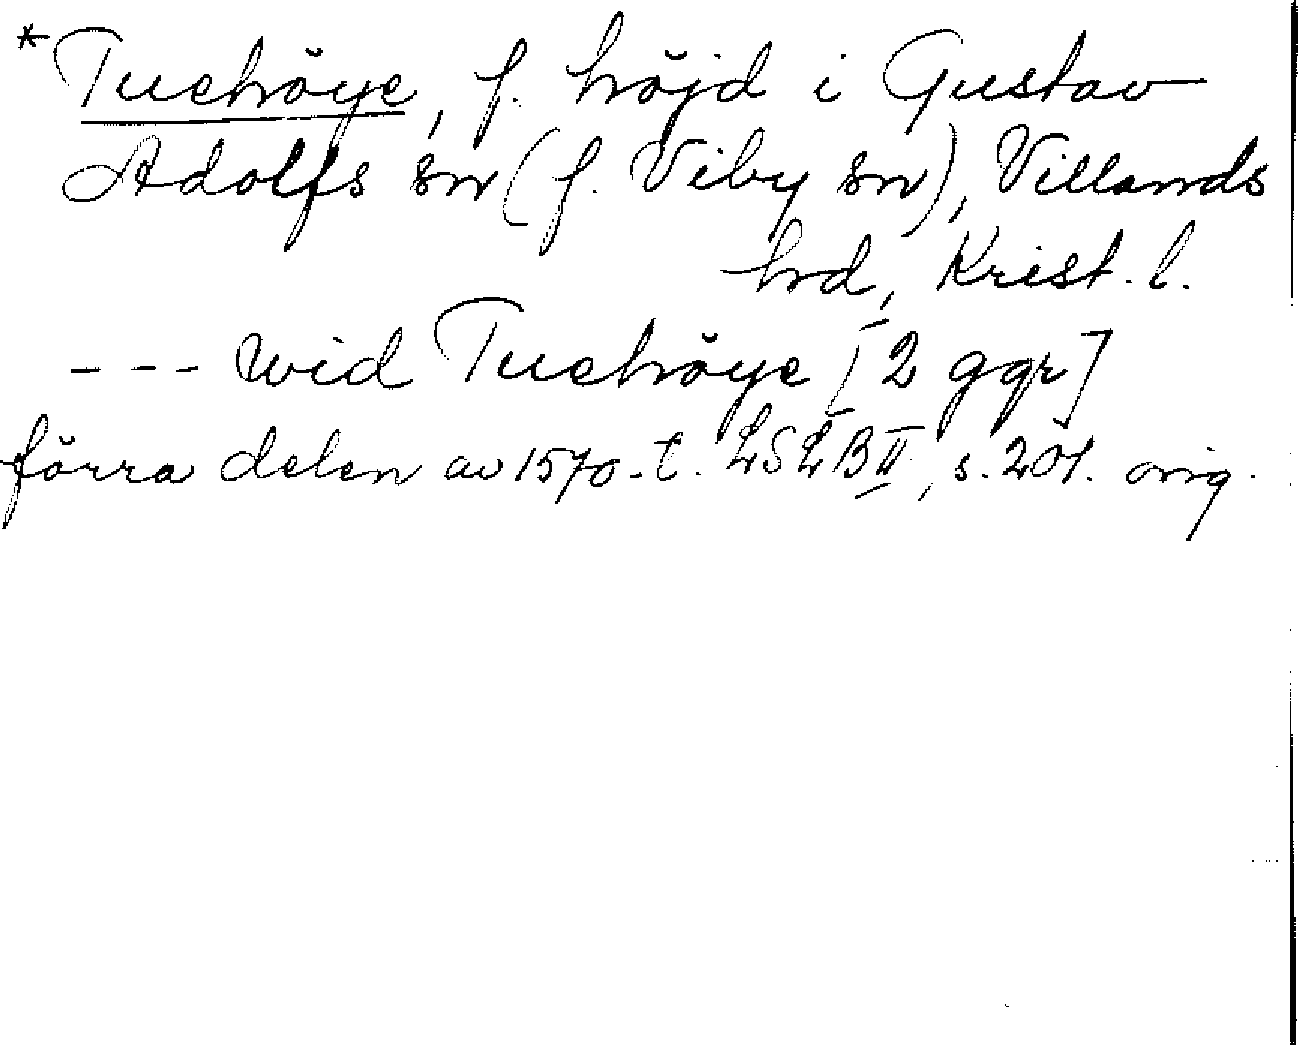 *Tuehöye, f. höjd i Gustav
Adolfs sn (f. Viby sn), Villands
hrd, Krist. l.
--- wid Tuehöye [2 ggr]
förra delen av 1570-t. LSLB II, s. 201. orig.